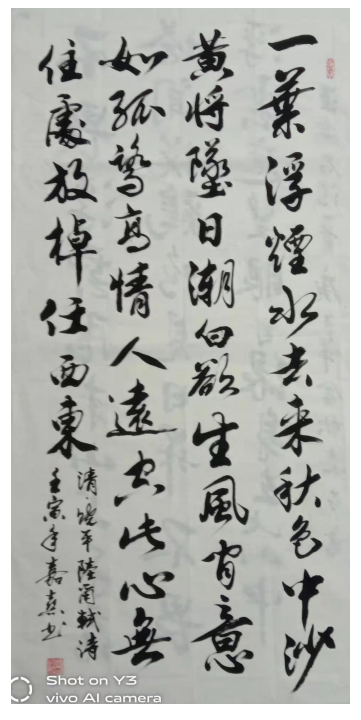 一葉浮煙水去来秋色中沙
黄将墜日潮白欲生風意
如孤鶩高情入遠空此心無
住處放棹任西東
清·饒平陸軾詩
壬寅年嘉书
Shot on Y3
vivo AI camera